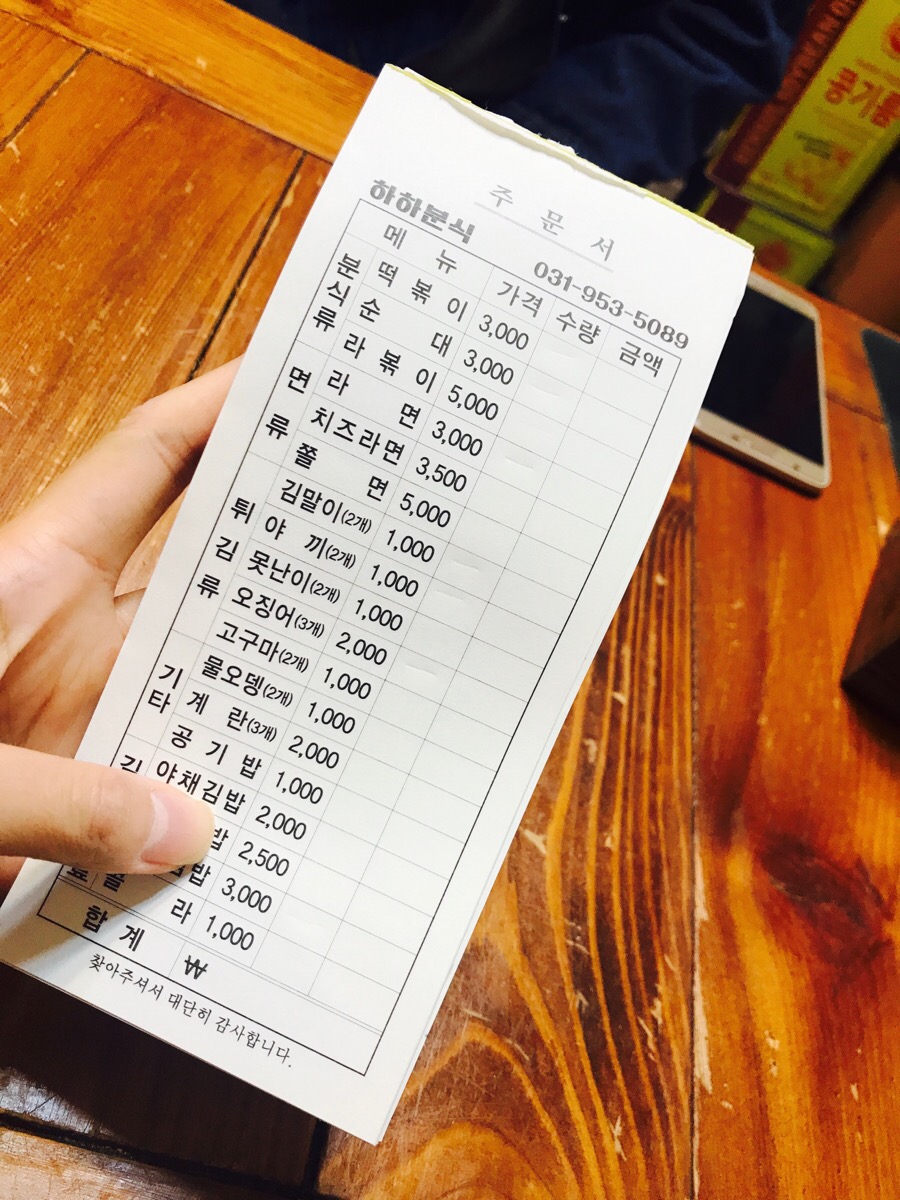 주문서
하하분식 031-953-5089
메뉴 가격 수량 금액
분식류 떡볶이 3,000
순대 3,000
라볶이 5,000
면류 라면 3,000
치즈라면 3,500
쫄면 5,000
튀김류 김말이(2개) 1,000
야끼(2개) 1,000
못난이(2개) 1,000
오징어(3개) 2,000
고구마(2개) 1,000
기타 물오뎅(2개) 1,000
계란(3개) 2,000
공기밥 1,000
야채김밥 2,000
밥 2,500
밥 3,000
라 1,000
합계 ₩
찾아주셔서 대단히 감사합니다.
콩기름